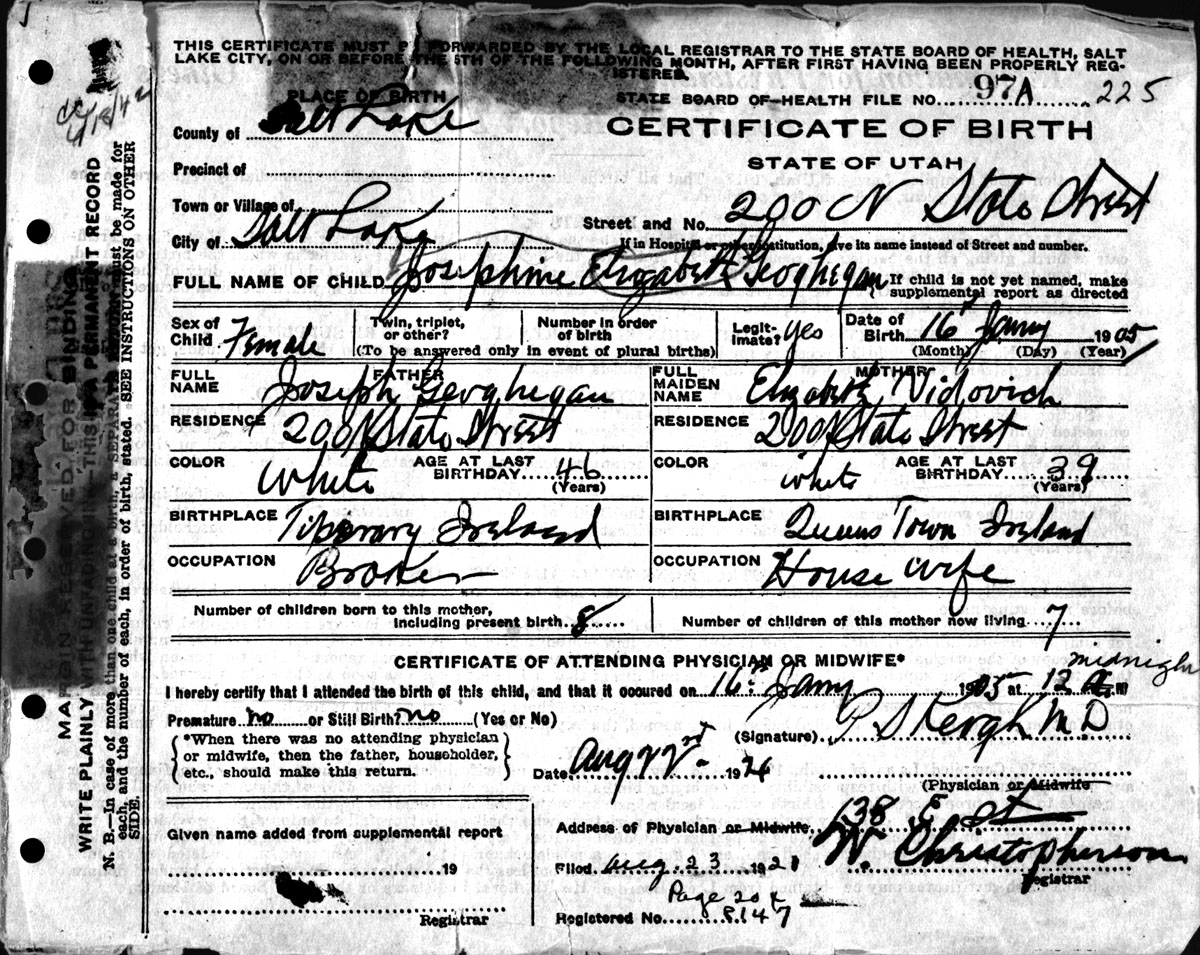 THIS CERTIFICATE MUST BE FORWARDED BY THE LOCAL REGISTRAR TO THE STATE BOARD OF HEALTH, SALT
LAKE CITY, ON OR BEFORE THE 5TH OF THE FOLLOWING MONTH, AFTER FIRST HAVING BEEN PROPERLY REG-
ISTERED.
PLACE OF BIRTH
STATE BOARD OF HEALTH FILE NO. 97A 225
County of Salt Lake
CERTIFICATE OF BIRTH
Precinct of
STATE OF UTAH
Town or Village of
Street and No. 200 N State Street
City of Salt Lake
If in Hospital or other institution, give its name instead of Street and number.
FULL NAME OF CHILD Josephine Elizabeth Geoghegan
{ If child is not yet named, make
supplemental report as directed
Sex of Child Female
Twin, triplet, or other?
Number in order of birth
(To be answered only in event of plural births)
Legitimate? yes
Date of Birth 16 Jany 1905
(Month) (Day) (Year)
FATHER
FULL NAME Joseph Geoghegan
MOTHER
FULL MAIDEN NAME Elizabeth Vidovich
RESIDENCE 200 N State Street
RESIDENCE 200 N State Street
COLOR White AGE AT LAST BIRTHDAY 46 (Years)
COLOR white AGE AT LAST BIRTHDAY 39 (Years)
BIRTHPLACE Tiperary Ireland
BIRTHPLACE Queens Town Ireland
OCCUPATION Broker
OCCUPATION House wife
Number of children born to this mother, including present birth 8
Number of children of this mother now living 7
CERTIFICATE OF ATTENDING PHYSICIAN OR MIDWIFE*
I hereby certify that I attended the birth of this child, and that it occured on 16th Jany 1905 at 12 midnight M
Premature no or Still Birth? no (Yes or No)
(Signature) P S Keogh M D
{ *When there was no attending physician
or midwife, then the father, householder,
etc., should make this return. }
Date Aug 22nd 192
(Physician or Midwife
Given name added from supplemental report
19
Registrar
Address of Physician or Midwife 138 E St
Filed Aug 23 192
W. Christopherson
Registrar
Page
Registered No. 8147
MARGIN RESERVED FOR BINDING
WRITE PLAINLY WITH UNFADING INK THIS IS A PERMANENT RECORD
N. B.—In case of more than one child at a birth, a SEPARATE RETURN must be made for
each, and the number of each, in order of birth, stated. SEE INSTRUCTIONS ON OTHER
SIDE.